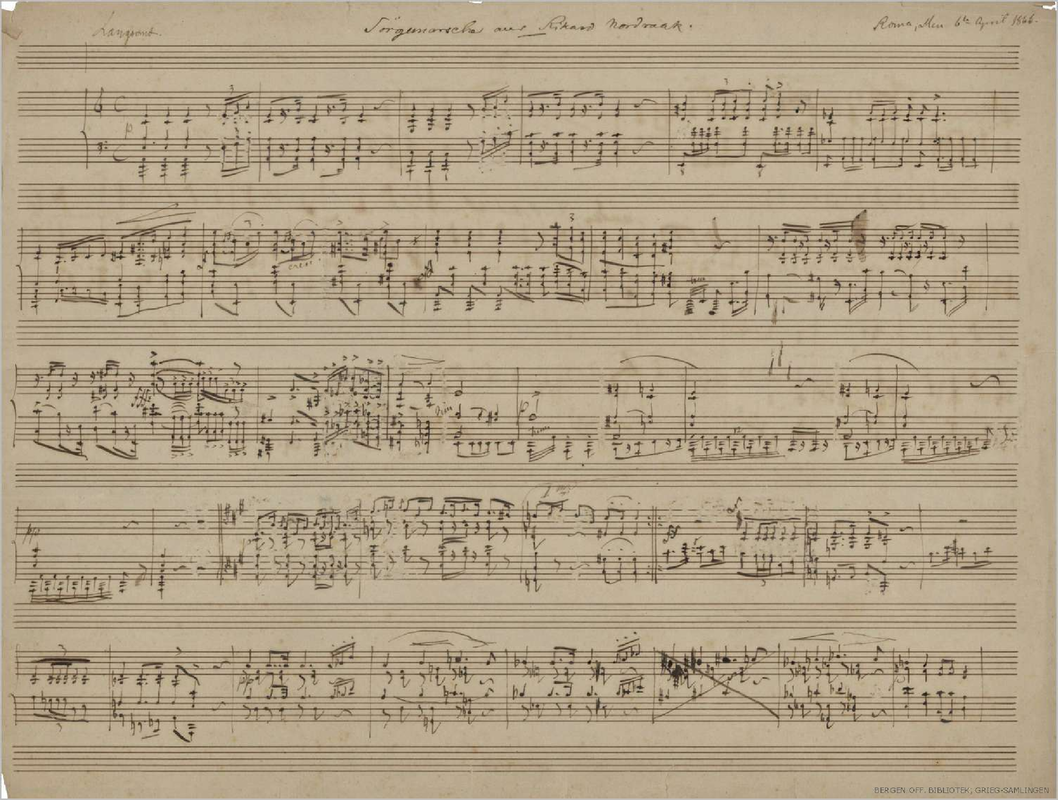 Langsomt.
Sørgemarsch over Rikard Nordraak.
Roma, den 6te April 1866.
3
3
3
dim
BERGEN OFF. BIBLIOTEK, GRIEG-SAMLINGEN